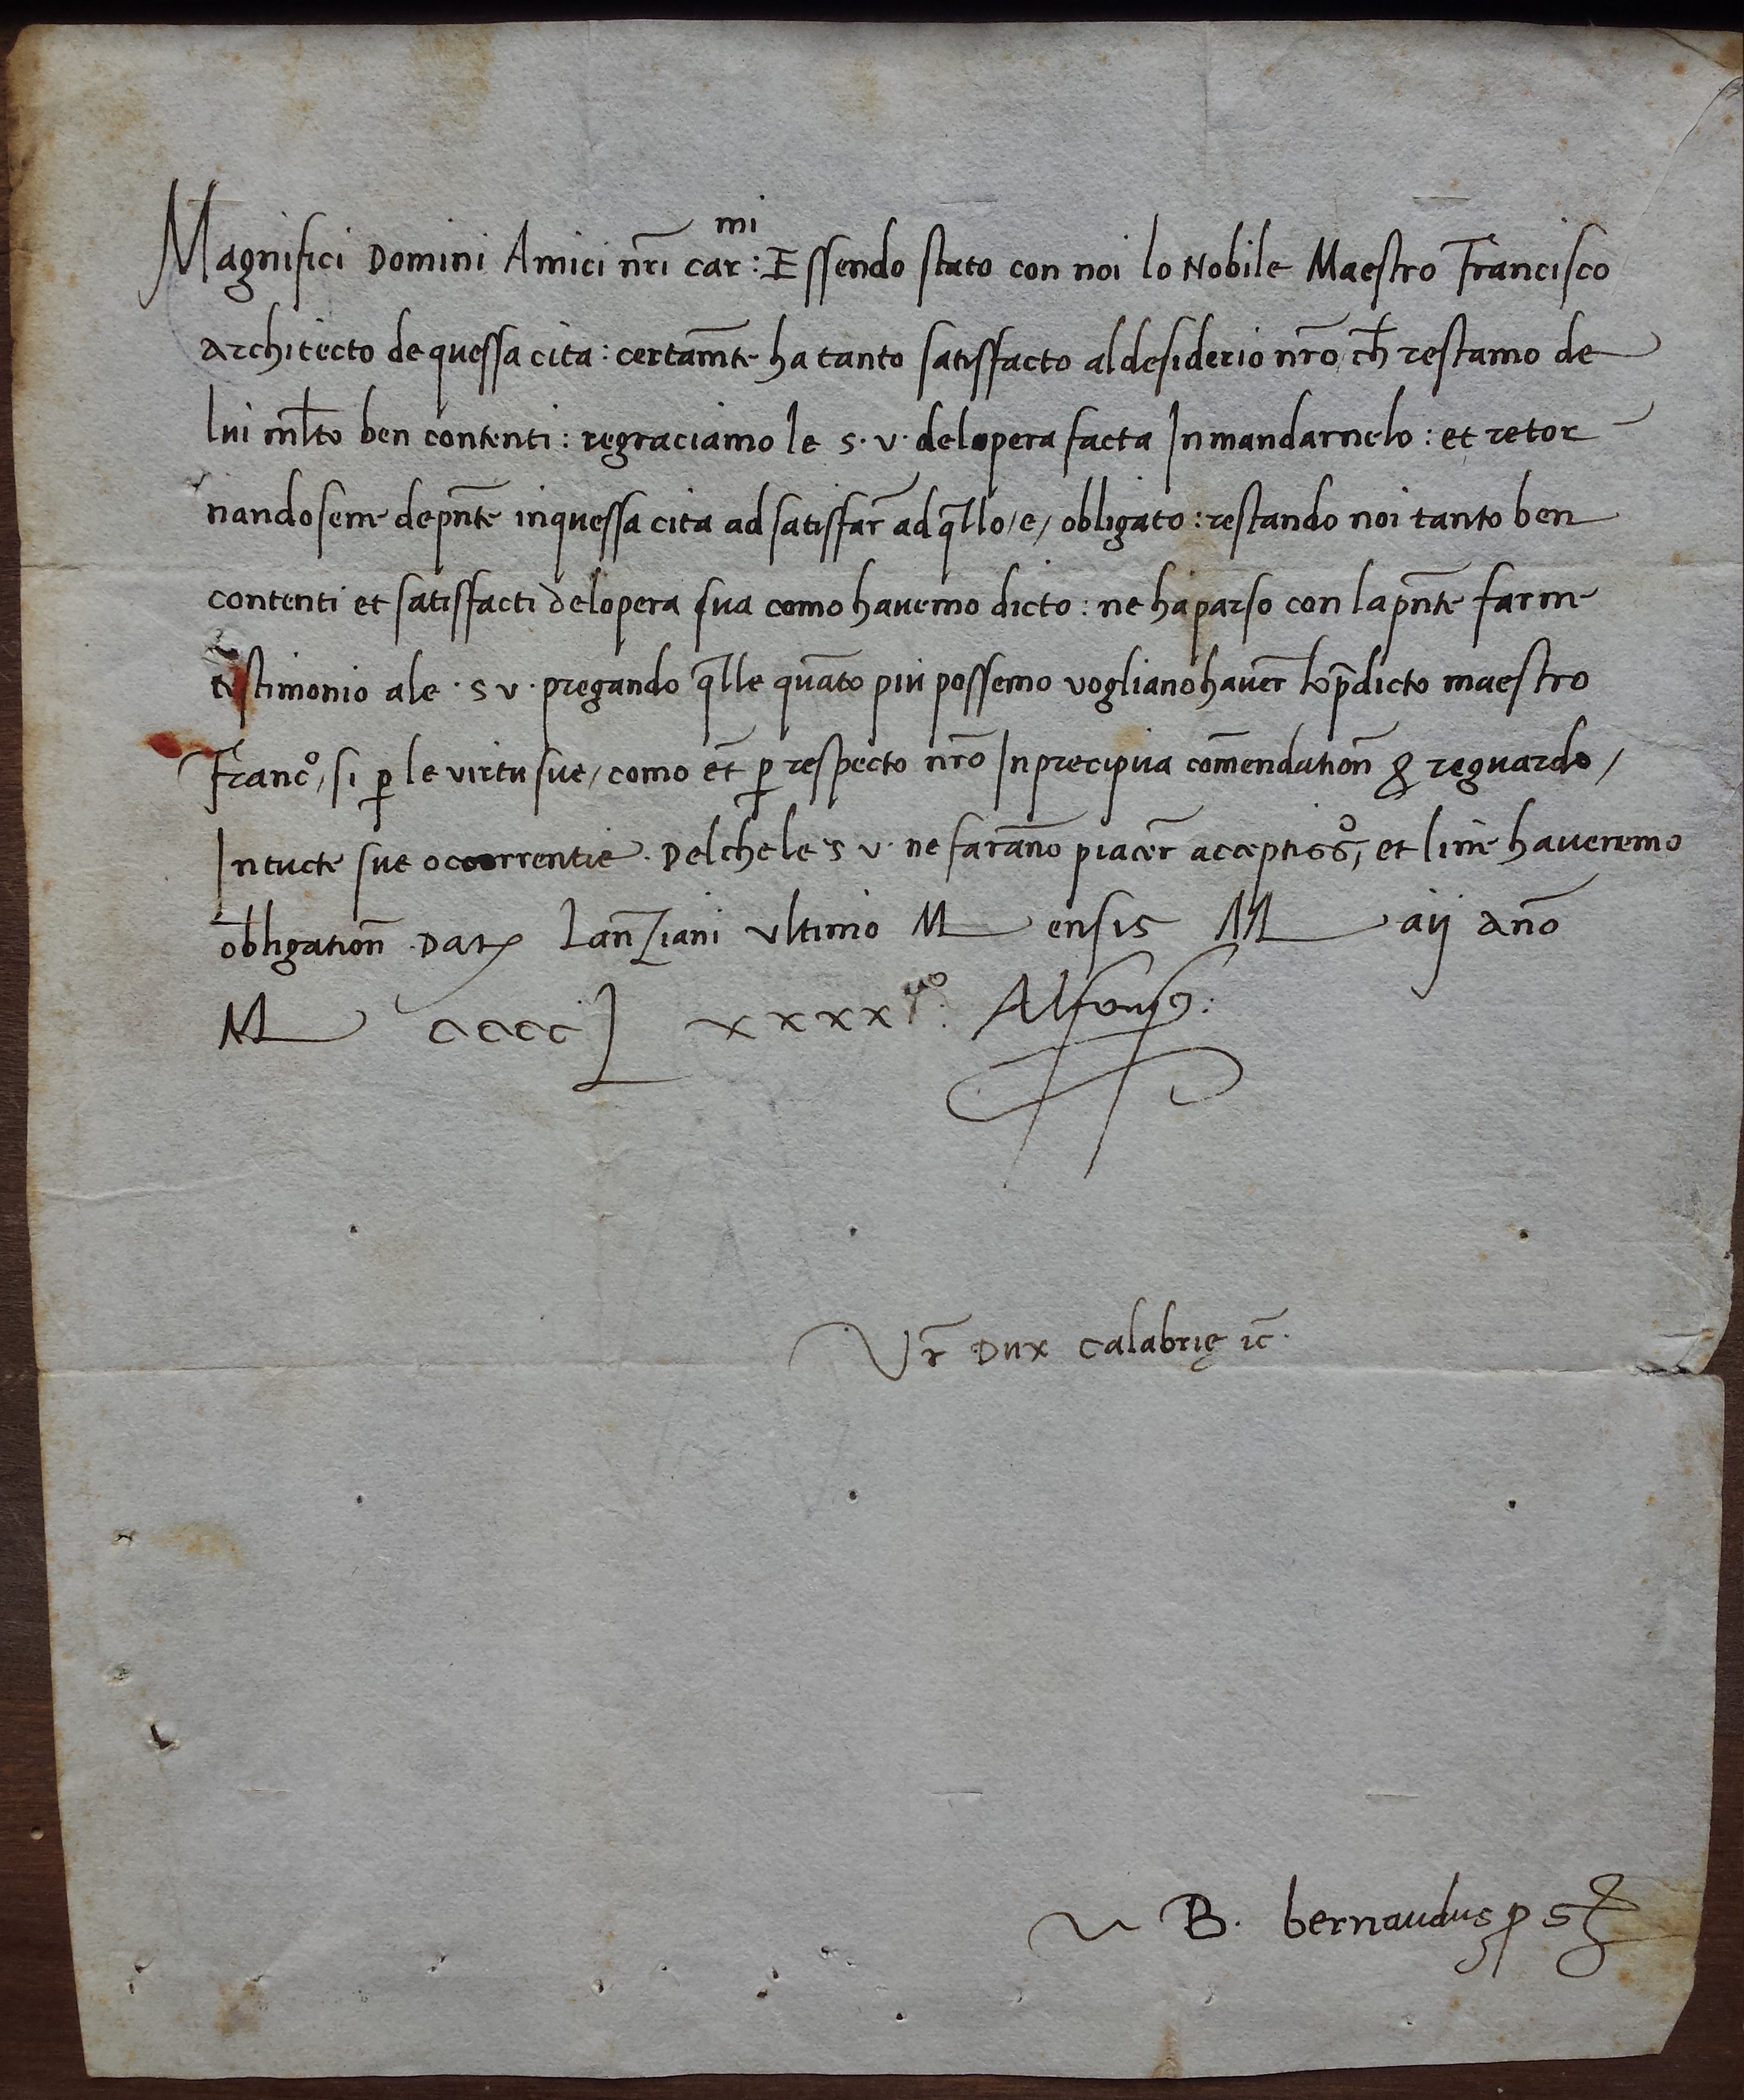 Magnifici Domini Amici nr̄i car:mi Essendo stato con noi lo Nobile Maestro Francisco
architecto de quessa cita: certam̄te ha tanto satisffacto al desiderio nr̄o, ch̄ restamo de
lui ml̄to ben contenti: regraciamo le s. v. del opera facta In mandarnelo: et retor
nandosene de pn̄te in quessa cita ad satisffar̄ ad q̄llo /e/ obligato: restando noi tanto ben
contenti et satisffacti del opera sua como havemo dicto: ne ha parso con la pn̄te farne
testimonio a le . s v . pregando q̄lle quāto piu possemo vogliano haver̄ lo p̄dicto maestro
Francº, si ꝑ le virtu sue / como et̄ ꝑ respecto nr̄o In precipua com̄endation̄ & reguardo /
In tucte sue occorrentie . Del che le s v . ne faran̄o piacer̄ acceptissº, et li ne haveremo
obligation̄ . Datꝭ Lanziani ultimo M ensis M aij an̄o
M cccc L xxxx º. Alfonsꝰ:
Vr̄ Dux Calabrię ꝛc̄.
B. bernaudus ꝓ s